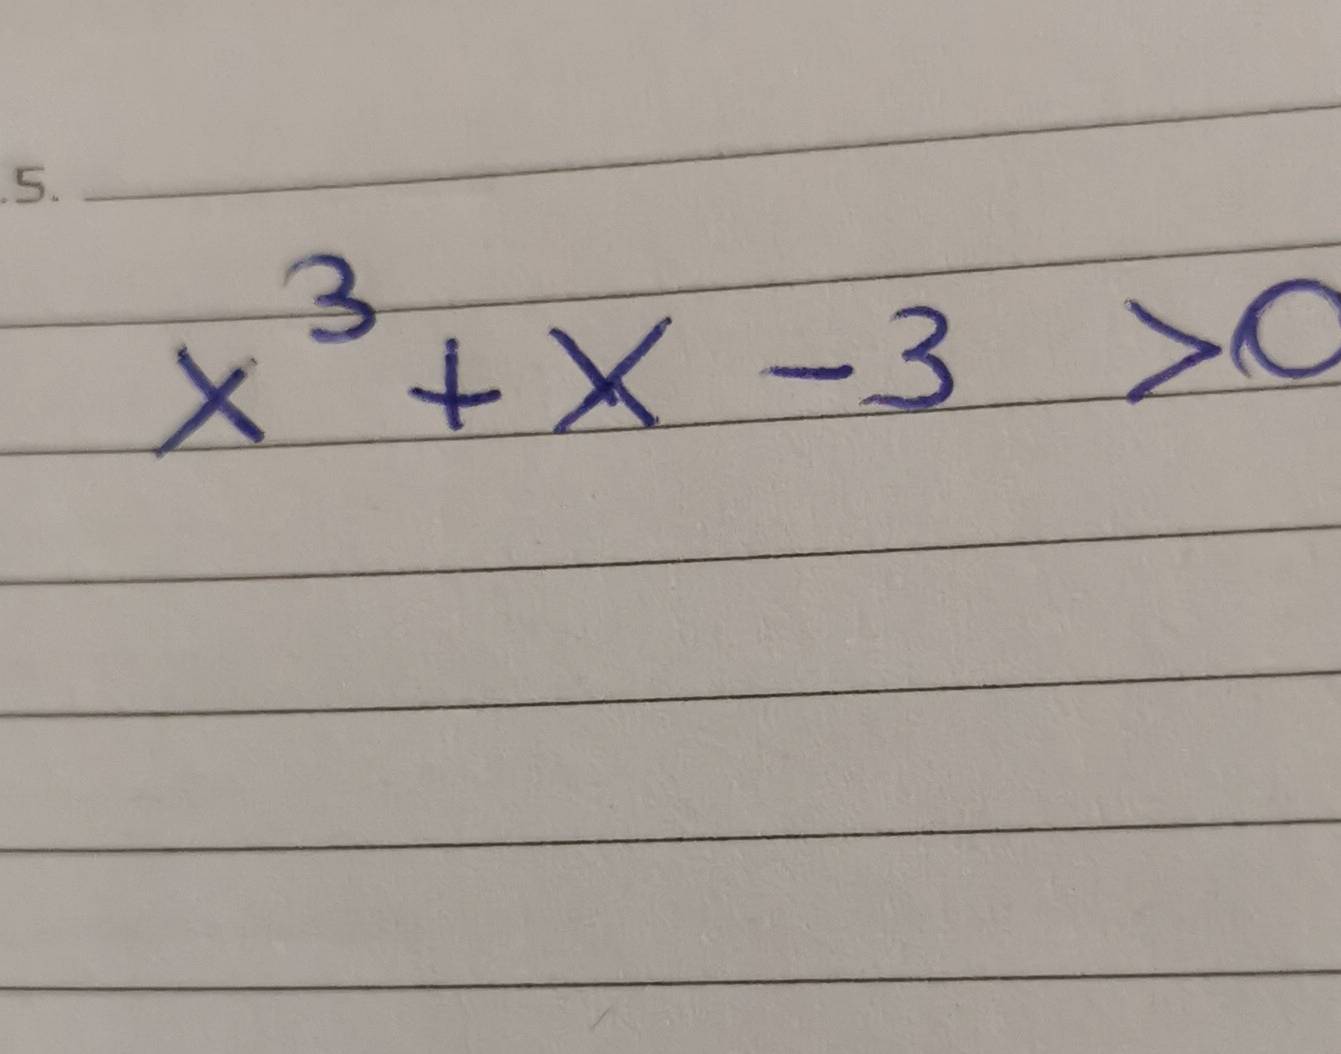 .5.
x³ + x - 3 > 0